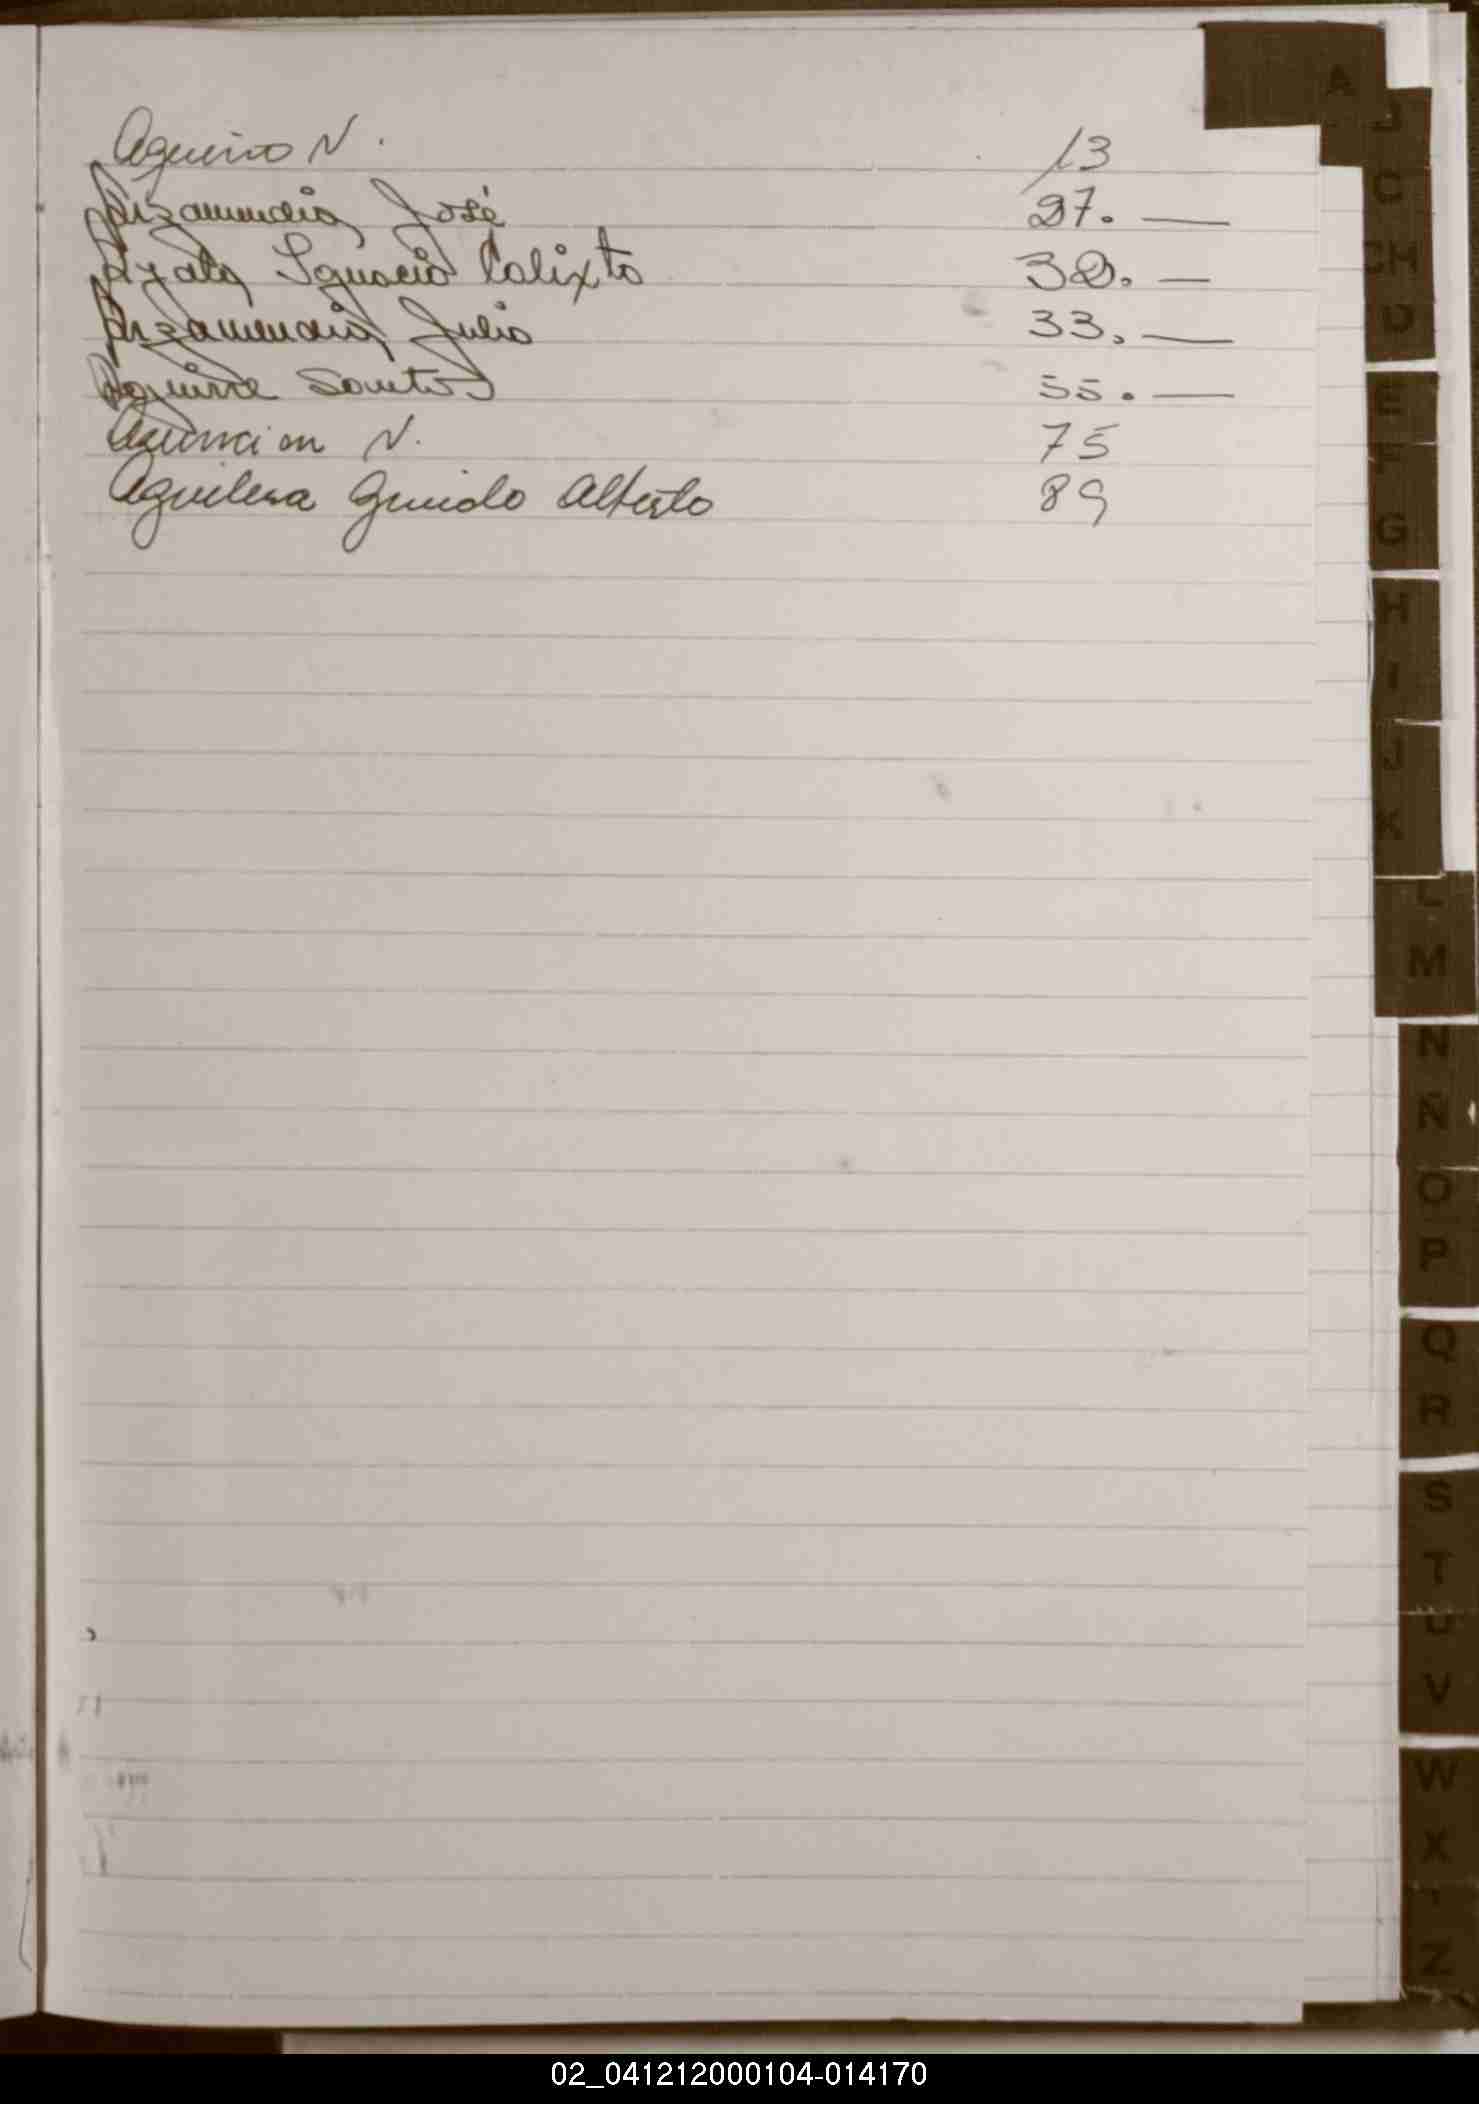 Aquino N. 13
Arzamendia José 27. —
Ayala Ignacio Calixto 32. —
Arzamendia Julio 33. —
Aguirre Santos 55. —
Asuncion N. 75
Aguilera Guido Alberto 89
A
B
C
CH
D
E
F
G
H
I
J
K
L
M
N
Ñ
O
P
Q
R
S
T
U
V
W
X
Z
02_041212000104-014170